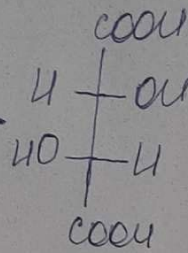 COOH
H OH
HO H
COOH